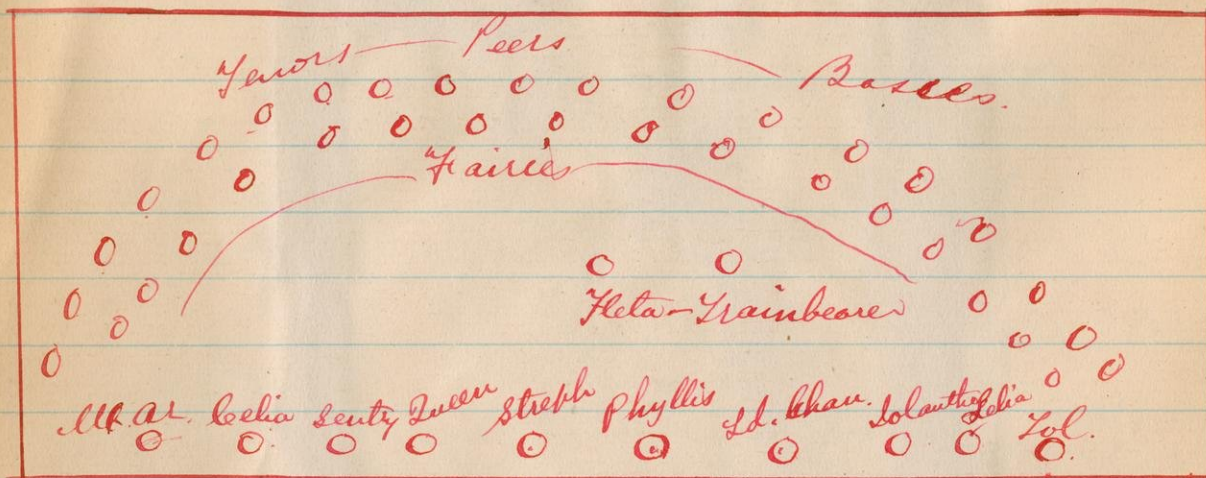 Tenors Peers Basses.
Fairies
Fleta - Trainbearer
Mt. Ar. Celia Sentry Queen Streph Phyllis Ld. Chan. Iolanthe Lelia Tol.